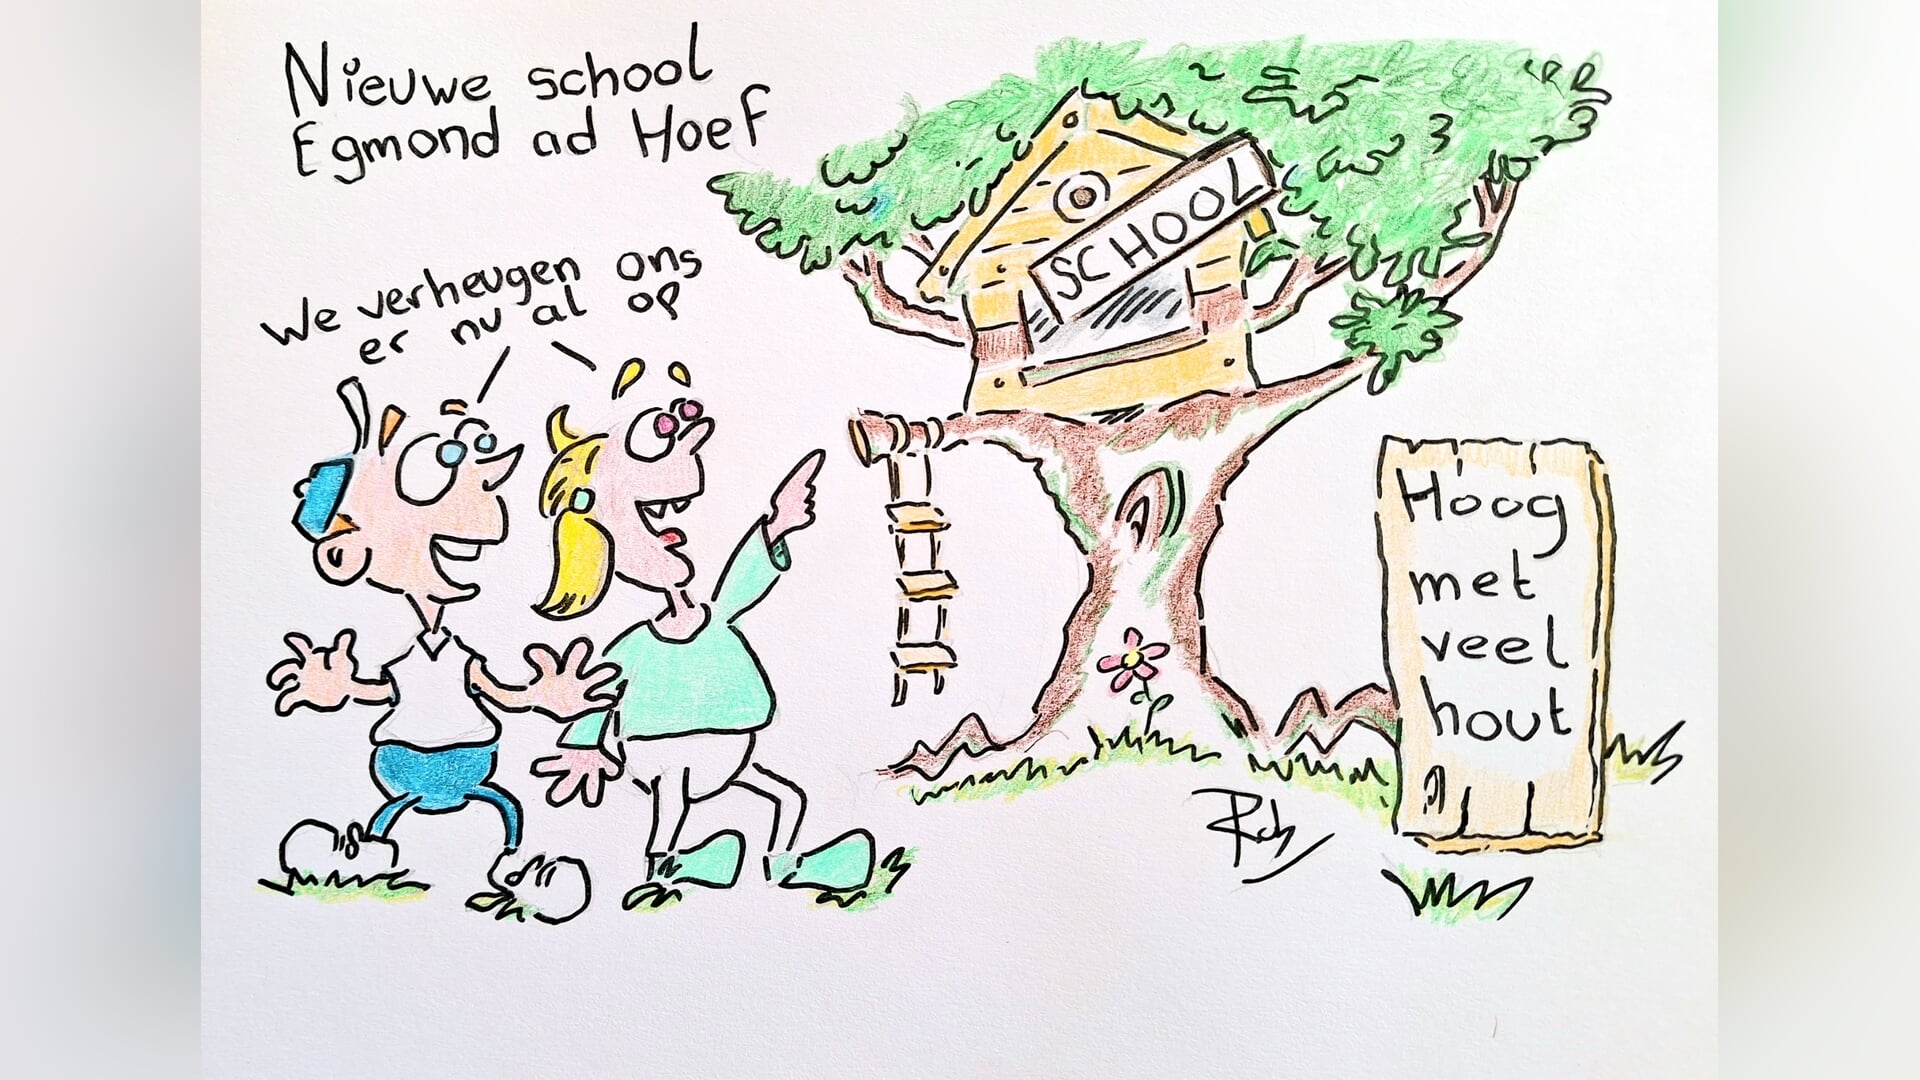 Nieuwe school
Egmond ad Hoef
We verheugen ons
er nu al op
SCHOOL
Hoog
met
veel
hout